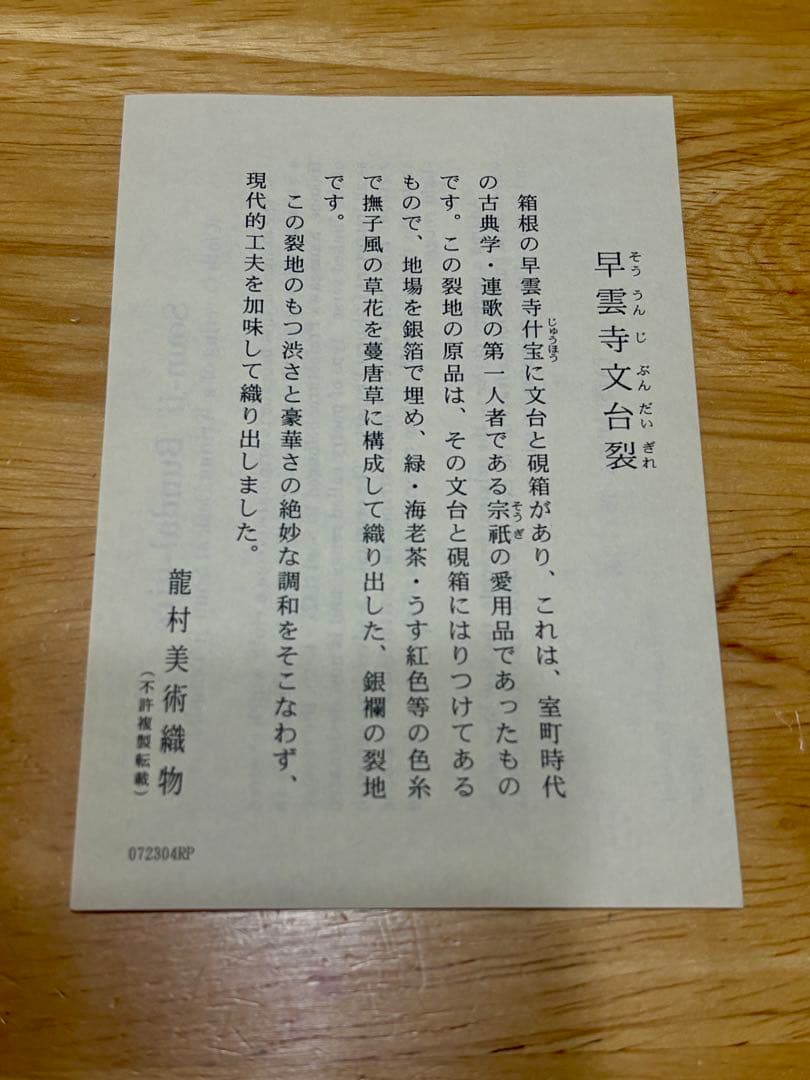 早雲寺文台裂
そううんじぶんだいぎれ
箱根の早雲寺什宝に文台と硯箱があり、これは、室町時代
じゅうほう
の古典学・連歌の第一人者である宗祇の愛用品であったもの
そうぎ
です。この裂地の原品は、その文台と硯箱にはりつけてある
もので、地場を銀箔で埋め、緑・海老茶・うす紅色等の色糸
で撫子風の草花を蔓唐草に構成して織り出した、銀襴の裂地
です。
この裂地のもつ渋さと豪華さの絶妙な調和をそこなわず、
現代的工夫を加味して織り出しました。
龍村美術織物
（不許複製転載）
072304RP